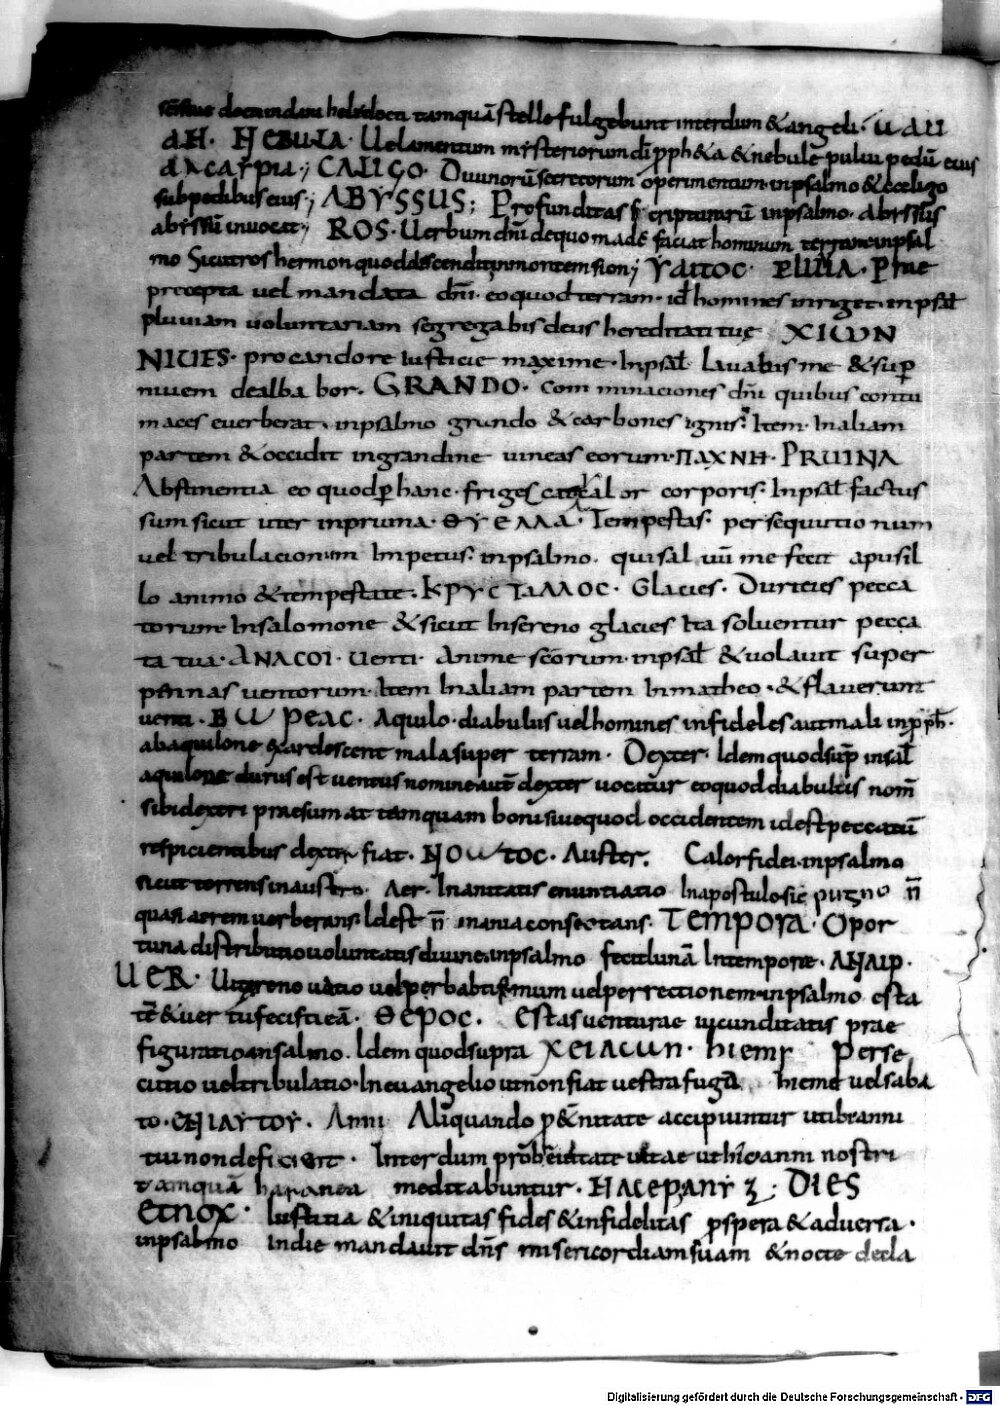 docti tamquā stelle fulgebunt interdum & angeli · UAU
AH · NEBULA · Uelamentum mysteriorum dī pph&a & nebule puluis pedū eius
CALIGO · Diuinorū secretorum operimentum inpsalmo & caligo
subpedibus eius ; ABYSSUS ; Profunditas scripturarū inpsalmo · abissus
abissū inuocat ; ROS · Uerbum dn̄i dequo madē faciat hominum terrane inpsal
mo Sicut ros hermon quod descendit inmontem sion ; PLUUIA · Prae
precepta uel mandata dn̄i · eo quod terram · id homines inriget · inpsal̄
pluuiam uoluntariam segregabis deus hereditati tuę XIWN
NIUES · pro candore iusticie maxime · Inpsal̄ Lauabis me & sup̄
niuem dealbabor · GRANDO · Comminaciones dn̄i quibus contu
maces euerberat · inpsalmo grando & carbones ignis : Item · Inaliam
partem & occidit ingrandine uineas eorum · ΠΑΧΝΗ · PRUINA
Abstinentia eo quod p̄ hanc · frigescat calor corporis · Inpsal̄ factus
sum sicut uter inpruina · ΘΥΕΛΛΑ · Tempestas · persequutionum
uel tribulacionum Impetus · inpsalmo · qui saluū me fecit apusil
lo animo & tempestate · ΚΡΥСΤΑΛΛΟС · Glacies · Duricies pecca
torum · Insalomone & sicut Insereno glacies Ita soluentur pecca
ta tua · ANACOI · Uenti · Anime sc̄orum · inpsal̄ & uolauit super
pennas uentorum · Item Inaliam partem Inmatheo · & flauerunt
uenti · BWPEAC · Aquilo · diabulus uel homines infideles aut mali inp̄ph̄ ·
abaquilone exardescent mala super terram · Dexter · Idem quod sup̄ insal̄
aquilone durus est uentus nomine autē dexter uocitur eo quod diabulus nom̄
sibi dextri praesumat tamquam boni siue quod occidentem idest peccatū
respicientibus dexter fiat · NOWTOC · Auster · Calor fidei · inpsalmo
sicut torrens in austro · Aer · Inanitatis enuntiatio Inapostulo sic pugno n̄
quasi aerem uerberans · Idest n̄ inania consectans · TEMPORA · Opor
tuna distributio uoluntatis diuine · inpsalmo fecit lunā Intempore · AHAIP ·
UER · uel per babtismum uel perrectionem · inpsalmo esta
tē & uer tu fecisti eā · ΘΕΡΟС · Estas uenturae iucunditatis prae
figuratio insalmo · Idem quod supra XEIACUN · hiems Perse
cutio uel tribulatio · In euangelio ut non fiat uestra fuga hieme uel saba
to · ENIAYTOY · Anni Aliquando p & nitate accipiuntur ut ibi anni
tui non deficient · Interdum pro breuitate uitae ut hic anni nostri
tamquā haranea meditabuntur · DIES
ETNOX · Iustitia & iniquitas fides & infidelitas p̄spera & aduersa ·
inpsalmo Indie mandauit dn̄s misericordiam suam & nocte decla
Digitalisierung gefördert durch die Deutsche Forschungsgemeinschaft - DFG